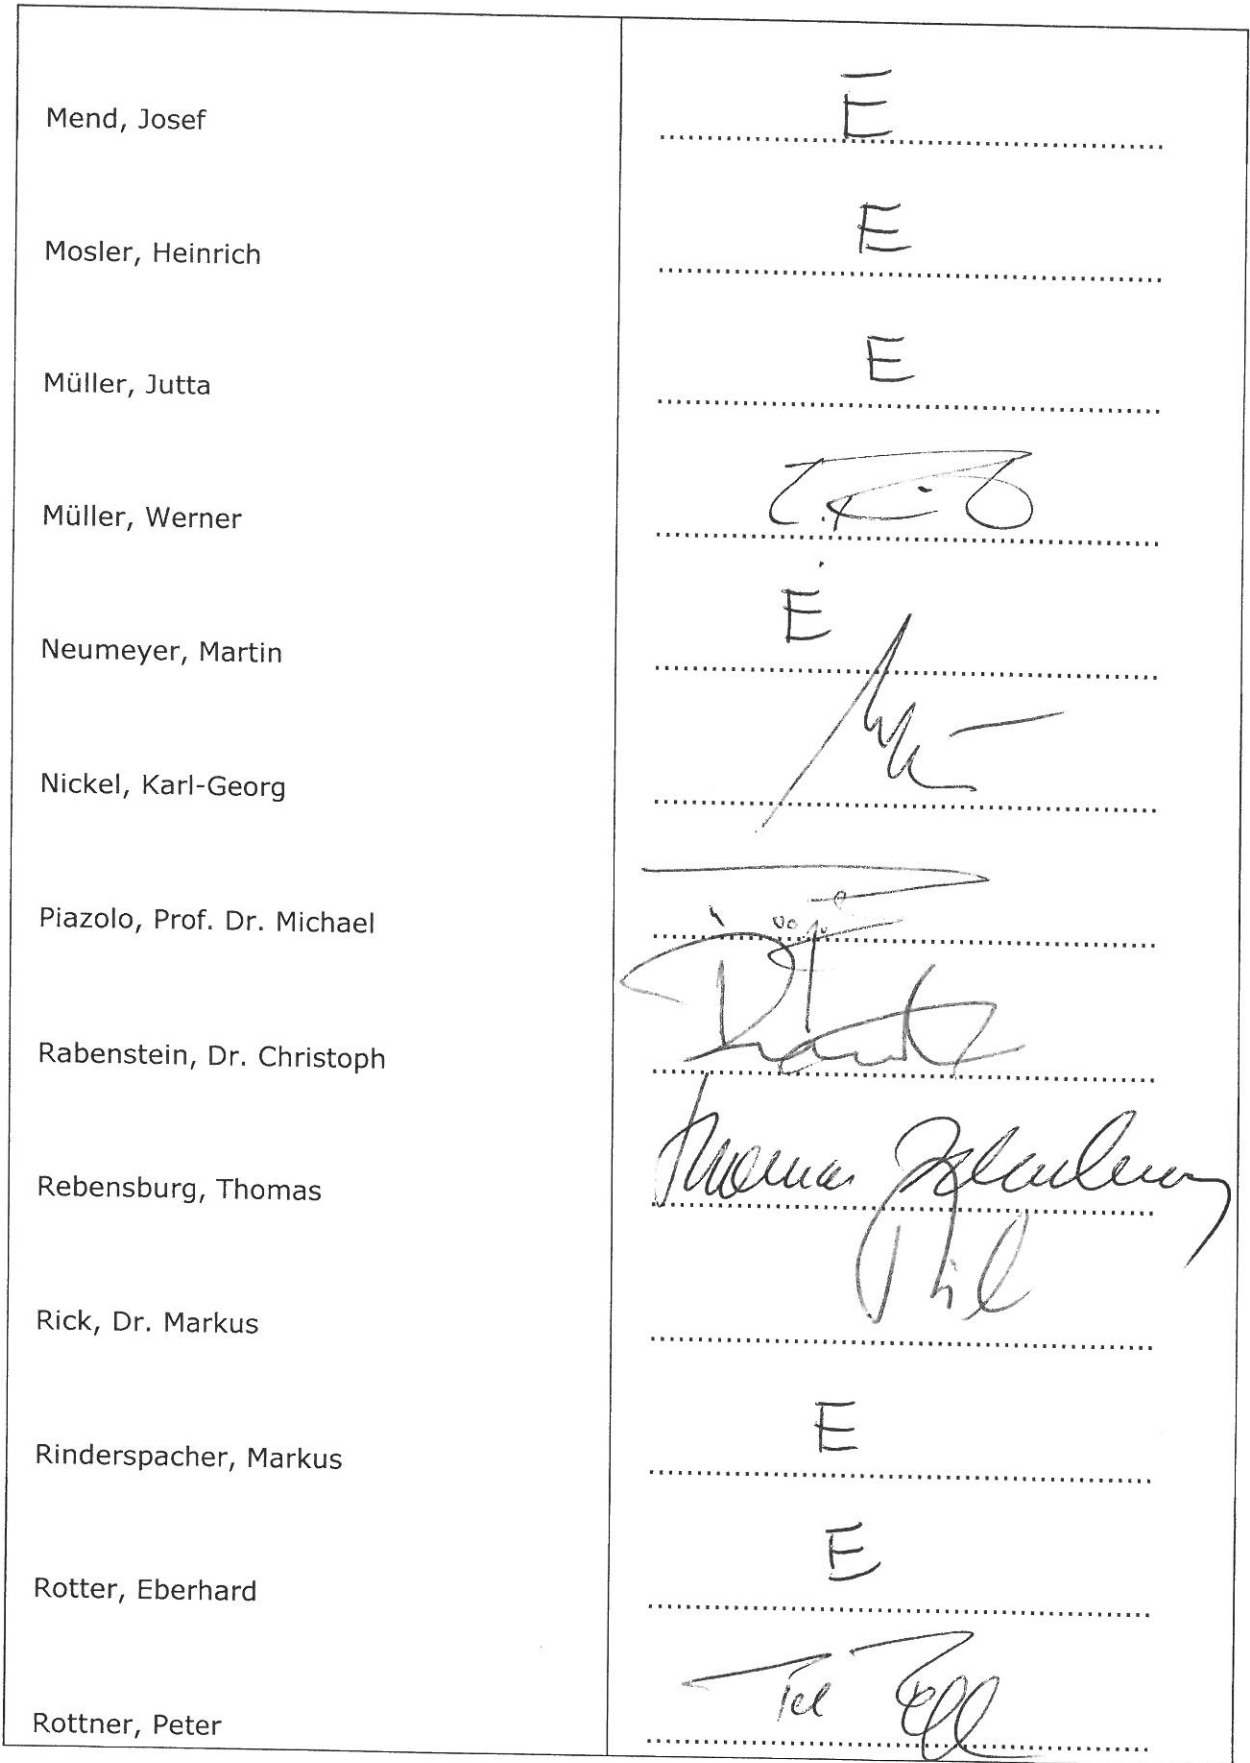 Mend, Josef E
Mosler, Heinrich E
Müller, Jutta E
Müller, Werner
Neumeyer, Martin E
Nickel, Karl-Georg
Piazolo, Prof. Dr. Michael
Rabenstein, Dr. Christoph
Rebensburg, Thomas Thomas
Rick, Dr. Markus
Rinderspacher, Markus E
Rotter, Eberhard E
Rottner, Peter